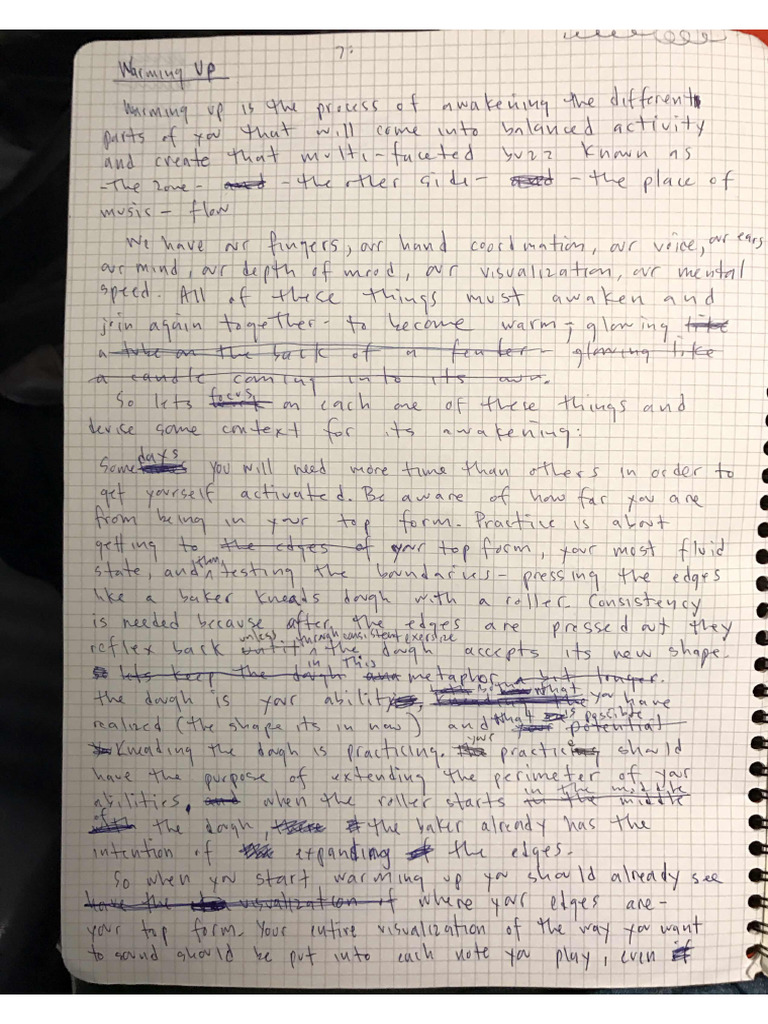 7.
Warming Up
Warming up is the process of awakening the different
parts of you that will come into balanced activity
and create that multi-faceted buzz known as
-The Zone- and -the other side- and -the place of
music- flow
We have our fingers, our hand coordination, our voice, our ears
our mind, our depth of mood, our visualization, our mental
speed. All of these things must awaken and
join again together- to become warm, glowing like
a tube on the back of a fender- glowing like
a candle coming into its own.
So lets focus on each one of these things and
devise some context for its awakening:
Some days you will need more time than others in order to
get yourself activated. Be aware of how far you are
from being in your top form. Practice is about
getting to the edges of your top form, your most fluid
state, and then testing the boundaries- pressing the edges
like a baker kneads dough with a roller. Consistency
is needed because after the edges are pressed out they
reflex back until unless through consistent exercise the dough accepts its new shape.
so lets keep the dough metaphor a bit longer. in This
the dough is your ability, what you have
realized (the shape its in now) and what is possible potential
Kneading the dough is practicing. your practicing should
have the purpose of extending the perimeter of your
abilities, and when the roller starts in the middle
of the dough, the baker already has the
intention of expanding the edges.
So when you start warming up you should already see
have the visualization of where your edges are-
your top form. Your entire visualization of the way you want
to sound should be put into each note you play, even if